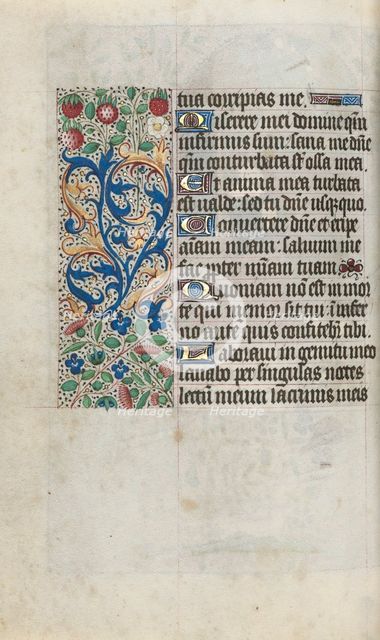 tua corripias me.
Miserere mei domine qm̄
infirmus sum: sana me dn̄e
qm̄ conturbata st̄ ossa mea.
Et anima mea turbata
est ualde: sed tu dn̄e usq̄quo.
Conuertere dn̄e et eripe
aīam meam: saluum me
fac propter mīam tuam
Quoniam nō est in mor
te qui memor sit tui: in infer
no autē quis confitebr̄ tibi.
Laboraui in gemitu meo
lauabo per singulas noctes
lectū meum lacrimis meis
Heritage
Heritage